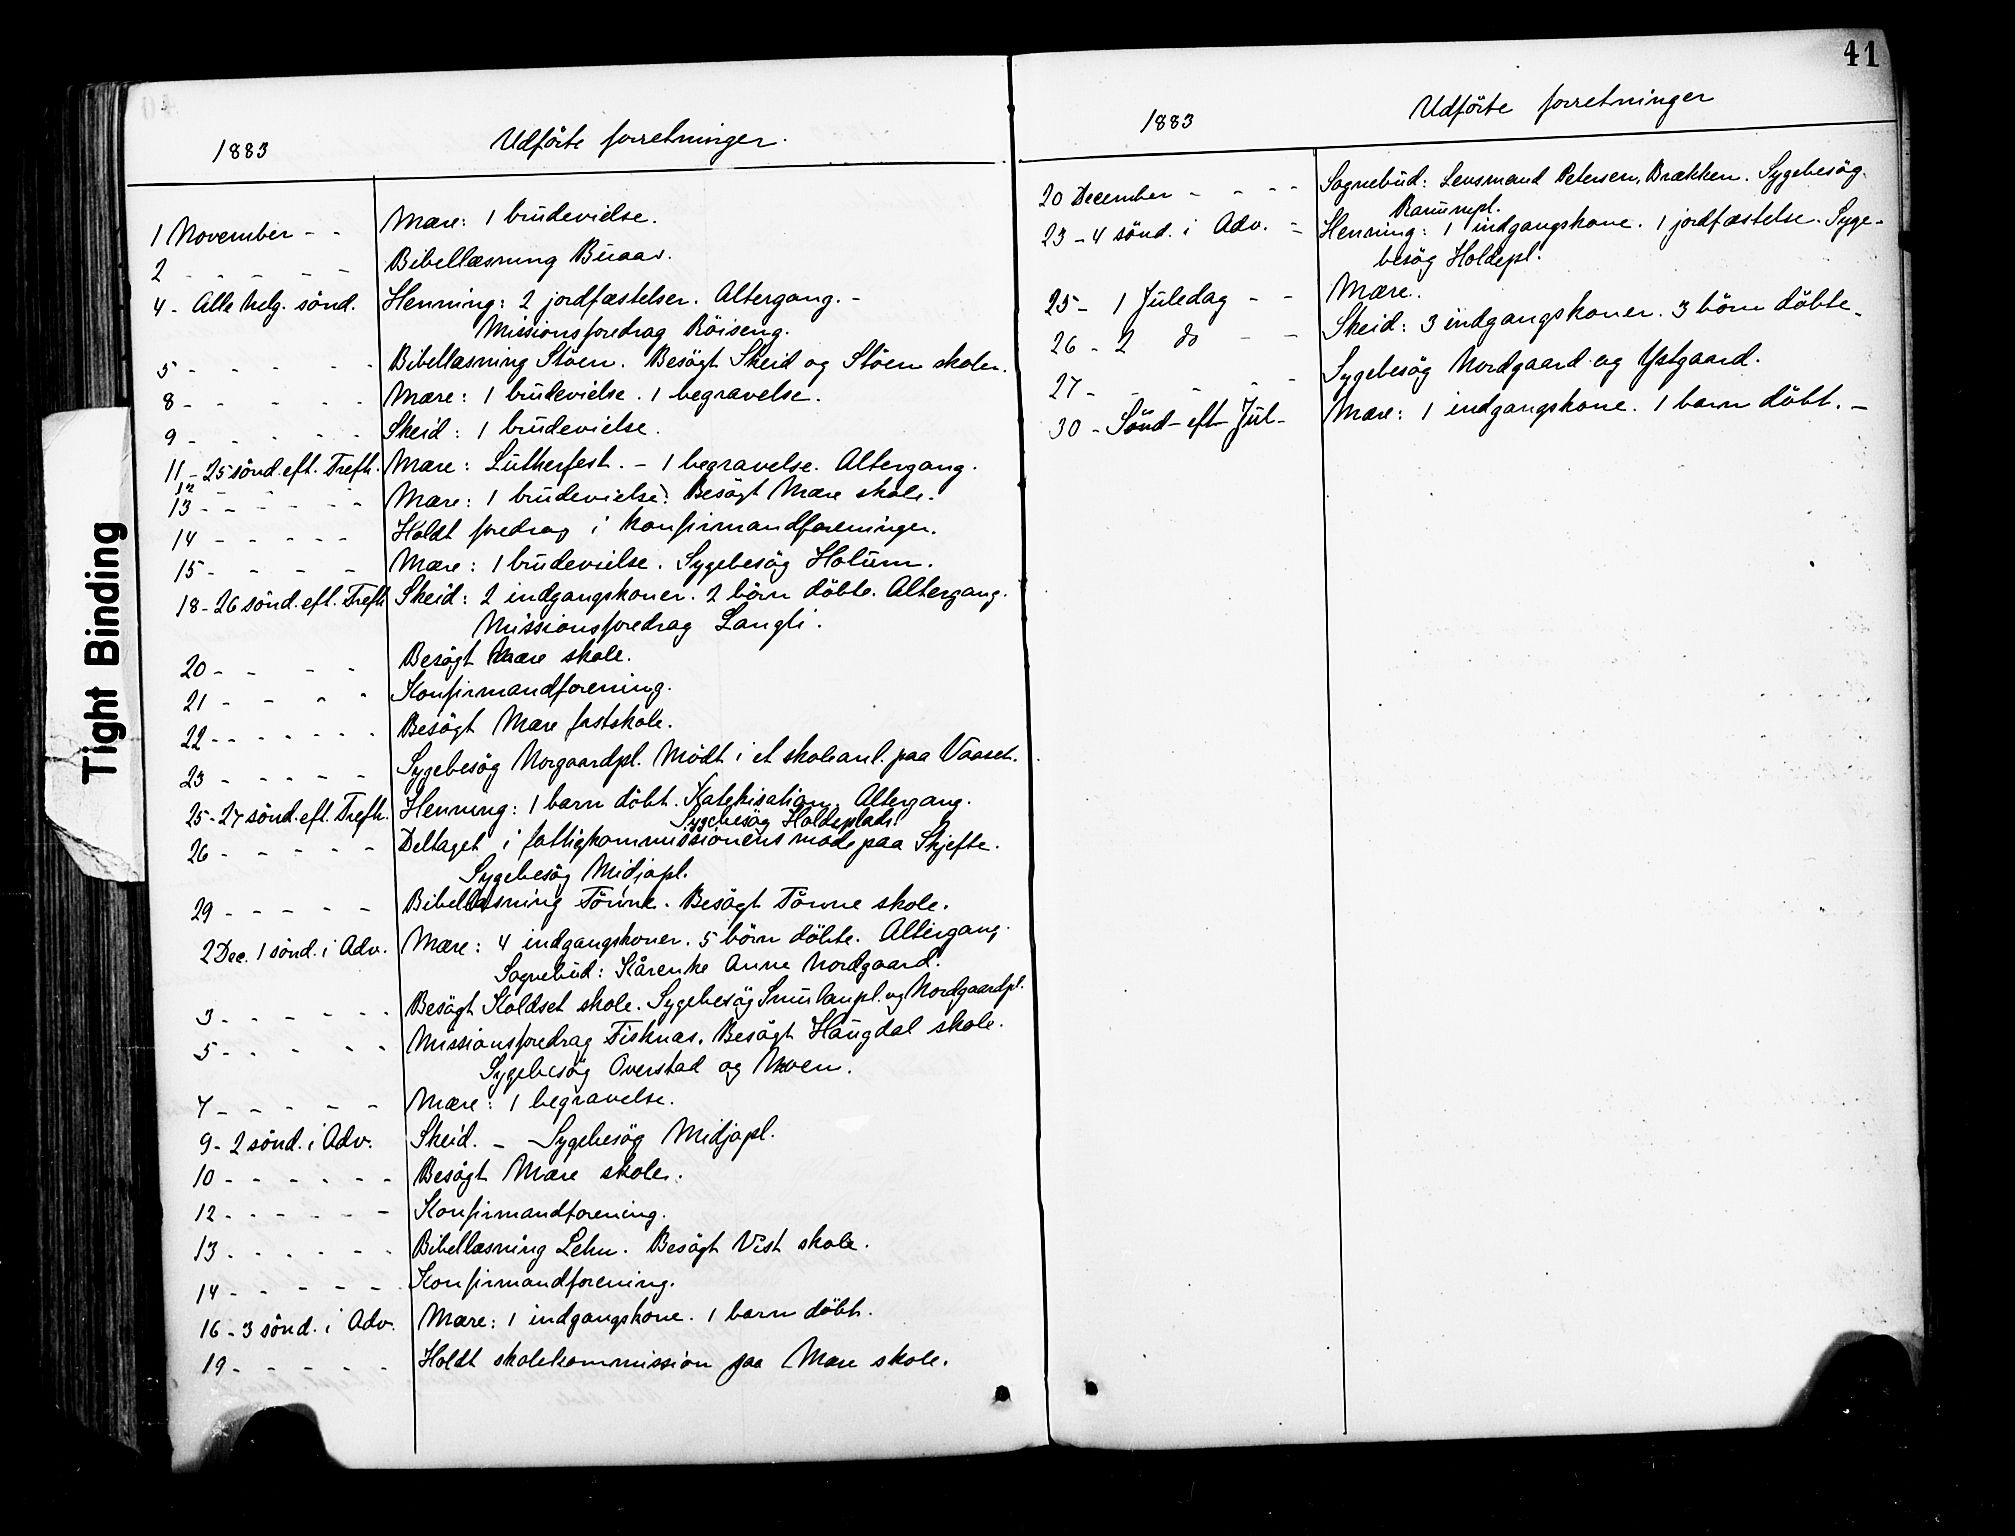 41
1883 Udförte forretninger.
1 November - - Mære: 1 brudevielse.
2 - - - - - Bibellæsning Buaas.
4 - Alle helg. sönd. Henning: 2 jordfæstelser. Altergang. -
Missionsforedrag Röiseng.
5 - - - - - Bibellæsning Stöen. Besögt Skeid og Stöen skoler.
8 - - - - - Mære: 1 brudevielse. 1 begravelse.
9 - - - - - Skeid: 1 brudevielse.
11 - 25 sönd. eft. Trefh. Mære: Lutherfest. - 1 begravelse. Altergang.
12
13 - - - - - Mære: 1 brudevielse. Besögt Mære skole.
14 - - - - - Holdt foredrag i konfirmandforeningen.
15 - - - - Mære: 1 brudevielse. Sygebesög Holum.
18 - 26 sönd. eft. Trefh. Skeid: 2 indgangskoner. 2 börn döbte. Altergang.
Missionsforedrag Langli.
20 - - - - Besögt Mære skole.
21 - - - - Konfirmandforening.
22 - - - - - - Besögt Mære fastskole.
23 - - - - - Sygebesög Norgaardpl. Mödt i et skoleanl. paa Vaaset.
25 - 27 sönd. eft. Trefh. Henning: 1 barn döbt. Katekisation. Altergang.
Sygebesög Holdeplads.
26 - - - - - Deltaget i fattigkommissionens möde paa Skjefte.
Sygebesög Midjapl.
29 - - - - - Bibellæsning Tönne. Besögt Tönne skole.
2 Dec. 1 sönd. i Adv. Mære: 4 indgangskoner. 5 börn döbte. Altergang.
Sognebud: Kårenke Anne Nordgaard.
3 - - - - - - Besögt Koldset skole. Sygebesög Smulanpl. og Nordgaardpl.
5 - - - - - Missionsforedrag Fisknæs. Besögt Haugdal skole.
Sygebesög Overstad og Moen.
7 - - - - - Mære: 1 begravelse.
9 - 2 sönd. i Adv. Skeid. - Sygebesög Midjapl.
10 - - - - - - Besögt Mære skole.
12 - - - - - - Konfirmandforening.
13 - - - - - - Bibellæsning Lehn. Besögt Vist skole.
14 - - - - - Konfirmandforening.
16 - 3 sönd. i Adv. Mære: 1 indgangskone. 1 barn döbt.
19 - - - - - Holdt skolekommission paa Mære skole.
1883 Udförte forretninger
20 December - - - - Sognebud: Lensmand Petersen, Brækken. Sygebesög
Rammpl.
23 - 4 sönd. i Adv. - Henning: 1 indgangskone. 1 jordfæstelse. Syge-
besög Holdepl.
25 - 1 Juledag - - Mære.
26 - 2 do - - Skeid: 3 indgangskoner. 3 börn döbte.
27 - - - - - Sygebesög Nordgaard og Ystgaard.
30 - Sönd. eft. Jul - Mære: 1 indgangskone. 1 barn döbt. -
Tight Binding